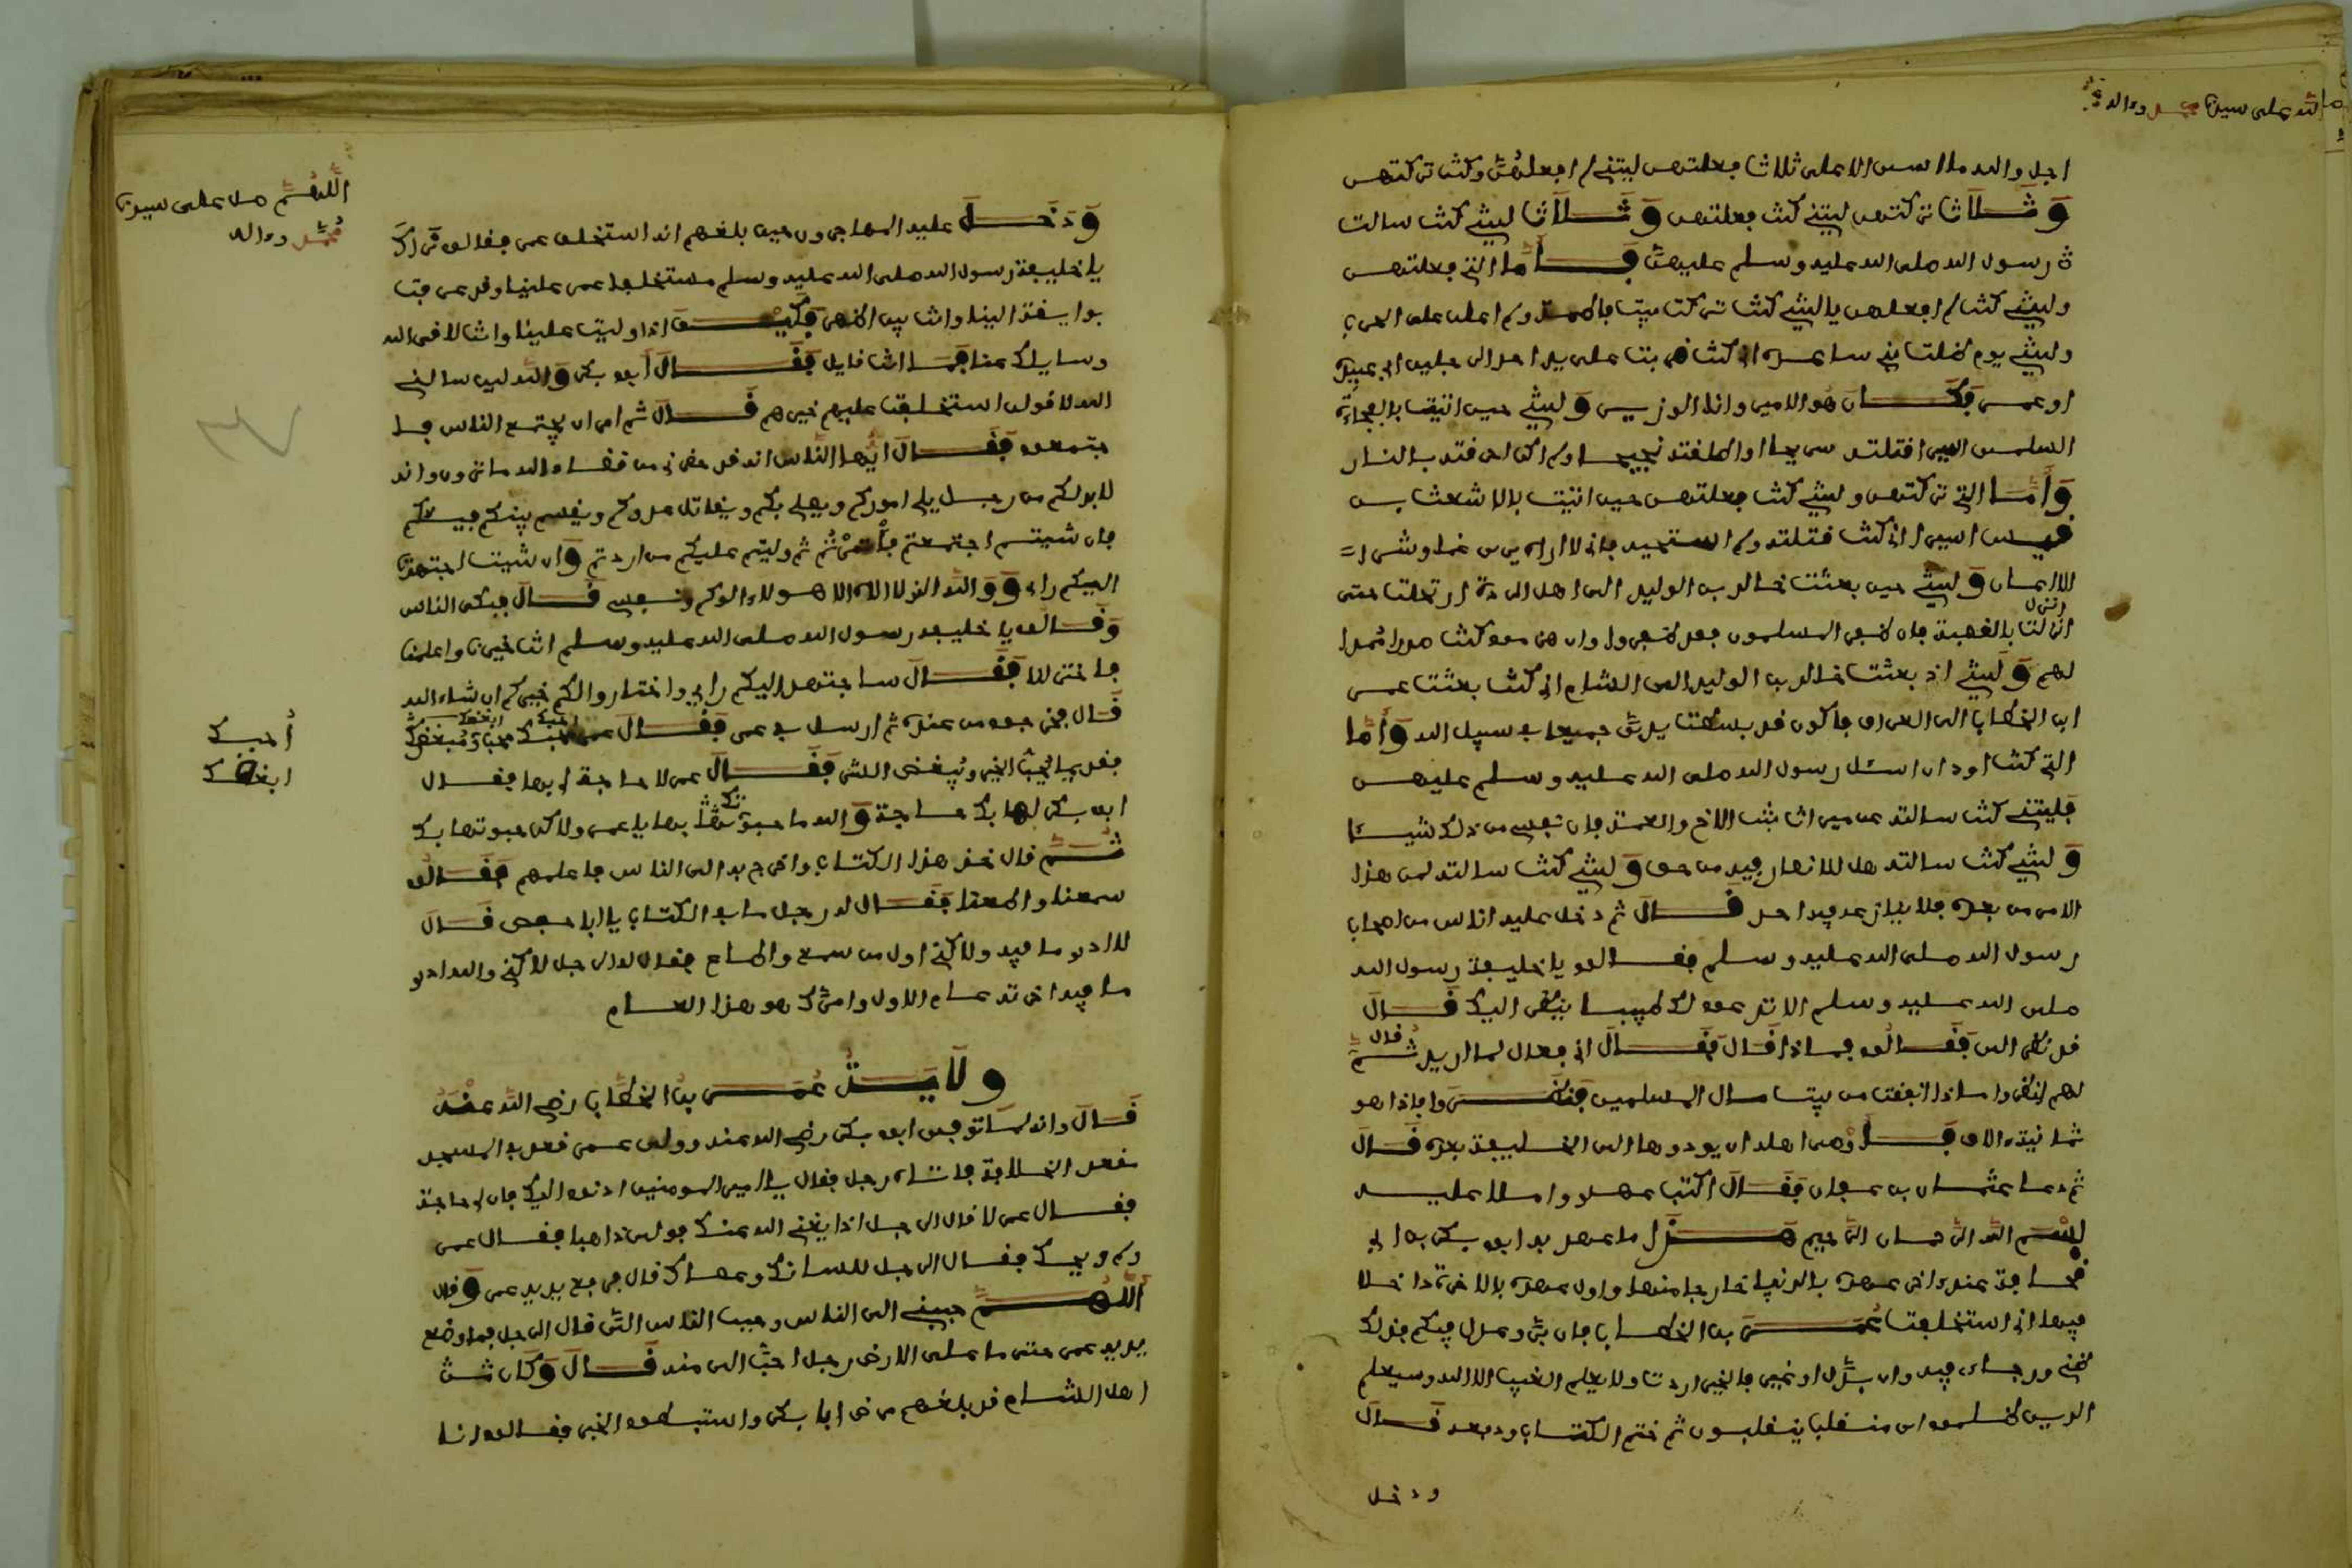 الله على سيدنا محمد وءاله
اجل والله ما اسى الا على ثلاثا فعلتهن ليتني لم افعلهن وكنت تركتهن
وثلاثا تركتهن ليتني كنت فعلتهن وثلاثا ليتني كنت سالت
رسول الله صلى الله عليه وسلم عليهن فاما التي فعلتهن
وليتني كنت لم افعلهن يا ليتني كنت تركت بيت فاطمة ولم اعلن على الحرب
وليتني يوم ظلت بني ساعدة اني كنت ضربت على يد احد الرجلين ابي عبيدة
او عمر فكان هو الامير وانا الوزير وليتني حين اتيت بالفجاءة
السلمى اسير اقتلته سريحا او اطلقته نجيحا ولم اكن احرقته بالنار
واما التي تركتهن وليتني كنت فعلتهن حين اتيت بالاشعث بن
قيس اسيرا اني كنت قتلته ولم استحيه فاني لا اراه يرى من غدا وشرا =
الا اعان وليتني حين بعثت خالد بن الوليد الى اهل الردة ارتحلت حتى
انزلت بالقصبة فان ظفر المسلمون فقد ظفروا وان هزموا كنت مددا ممدا
لهم وليتني اذ بعثت خالد بن الوليد الى الشام اني كنت بعثت عمر
ابن الخطاب الى العراق فاكون قد بسطت يدي جميعا في سبيل الله واما
التي كنت اود ان اسئل رسول الله صلى الله عليه وسلم عليهن
فليتني كنت سالته عن ميراث بنت الاخ والعمة فان نفسي من ذلك شيئا
وليتني كنت سالته هل للانصار فيه من حق وليتني كنت سالته لمن هذا
الامر من بعده فلا ينازعه فيه احد قال ثم دخل عليه اناس من اصحاب
رسول الله صلى الله عليه وسلم فقالوا يا خليفة رسول الله
صلى الله عليه وسلم الا تدعوا لك طبيبا ينظر اليك قال
قد نظر الي فقالوا فماذا قال فقال اني فعال لما اريد ثم قال
لهم انظروا ماذا انفقت من بيت مال المسلمين فنظروا فاذا هو
ثمانية الاف فاوصى اهله ان يودوها الى الخليفة بعده قال
ثم دعا عثمان بن عفان فقال اكتب عهدي واملا عليه
بسم الله الرحمان الرحيم هذا ما عهد به ابو بكر بن ابي
قحافة عند ءاخر عهده بالدنيا خارجا منها واول عهده بالاخرة داخلا
فيها اني استخلفت عمر بن الخطاب فان بر وعدل فيكم فذلك
ظني ورجاءي فيه وان بدل او غير فالخير اردت ولا يعلم الغيب الا الله وسيعلم
الذين ظلموا اي منقلب ينقلبون ثم ختم الكتاب ودفعه قال
ودخل
اللهم صل على سيدنا
محمد وءاله
ودخل عليه المهاجرون حين بلغهم انه استخلف عمر فقالوا نراك
يا خليفة رسول الله صلى الله عليه وسلم مستخلفا عمر علينا وقد عرفت
بوايقه الينا وانت بين اظهرنا فكيف اذا وليت علينا وانت لاقى الله
وسايلك عنا فما انت قايل فقال ابو بكر والله لين سالني
الله لاقولن استخلفت عليهم خيرهم قال ثم امر ان يجتمع الناس فا
جتمعوا فقال ايها الناس انه قد حضرني من قضاء الله ما ترون وانه
لابد لكم من رجل يلي اموركم ويصلي بكم ويقاتل عدوكم ويقسم بينكم فيئكم
فان شيتم اجتمعتم فأتمرتم ثم وليتم عليكم من اردتم وان شيت اجتهدت
اليكم راي ووالله الذي لا اله الا هو لا ءالوكم ونفسي قال فبكى الناس
وقالوا يا خليفة رسول الله صلى الله عليه وسلم انت خيرنا واعلمنا
فاختر لنا فقال ساجتهد اليكم رايي واختار والكم خيركم ان شاء الله
قال فخرجوا من عنده ثم ارسل في عمر فقال عمر احبك محب وابغضك مبغض
فقديما يحب الخير ويبغض الشر فقال عمر لا حاجة لي بها فقال
ابو بكر لها بك حاجة والله ما حبوتك بها يا عمر ولاكن حبوتها بك
ثم قال خذ هذا الكتاب واخرج به الى الناس فاعلمهم فقالوا
سمعنا واطعنا فقال له رجل ما في الكتاب يا ابا حفص قال
لا ادري ما فيه ولاكني اول من سمع واطاع فقال له الرجل لاكني والله ادري
ما فيه امرته عام الاول وامرك هو هذا العام
أحبك
ابغضك
ولاية عمر بن الخطاب رضي الله عنه
قال وانه لما توفى ابو بكر رضي الله عنه وولى عمر قعد في المسجد
مقعد الخلافة فاتاه رجل فقال يا امير المومنين ادنوا اليك فان لي حاجة
فقال عمر لا قال الرجل اذا يغني الله عنك فولى ذاهبا فقال عمر
ولم ويحك فقال الرجل للسانك وعصاك قال فرفع يديه عمر وقال
اللهم حببني الى الناس وحبب الناس الي قال الرجل فما وضع
يديه عمر حتى ما على الارض رجل احب الي منه قال وكان ثم
اهل الشام قد بلغهم مرض ابا بكر واستبطوا الخبر فقالوا انا